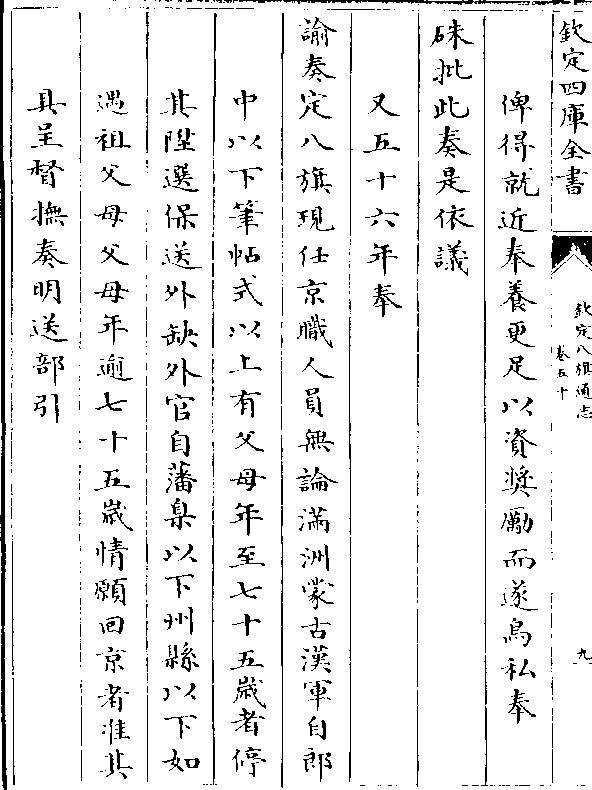 欽定四庫全書
欽定八旗通志
卷五十
九
俾得就近奉養更足以資奨勵而遂烏私奉
硃批此奏是依議
又五十六年奉
諭奏定八旗現任京職人員無論滿洲蒙古漢軍自郎
中以下筆帖式以上有父母年至七十五歲者停
其陞選保送外缺外官自藩臬以下州縣以下如
遇祖父母父母年逾七十五歲情願回京者准其
具呈督撫奏明送部引